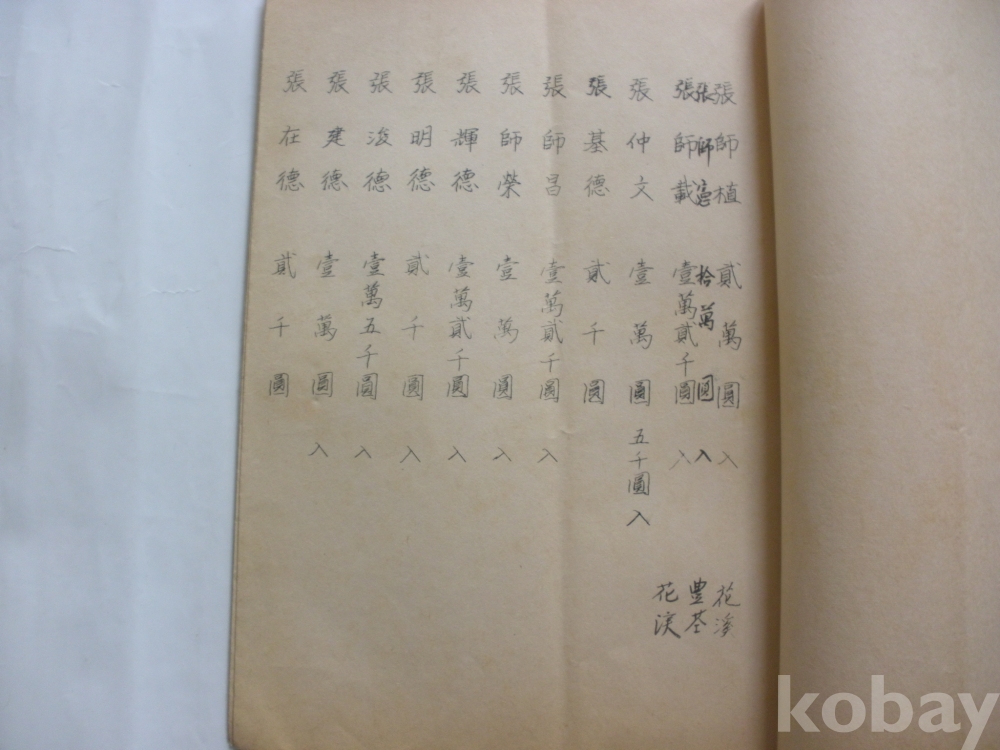 張師植 貳萬圓 入 花溪
張師憲 拾萬圓 入 豊基
張師載 壹萬貳千圓 入 花溪
張仲文 壹萬圓 五千圓入
張基德 貳千圓
張師昌 壹萬貳千圓 入
張師榮 壹萬圓 入
張輝德 壹萬貳千圓 入
張明德 貳千圓 入
張浚德 壹萬五千圓 入
張建德 壹萬圓 入
張在德 貳千圓
kobay